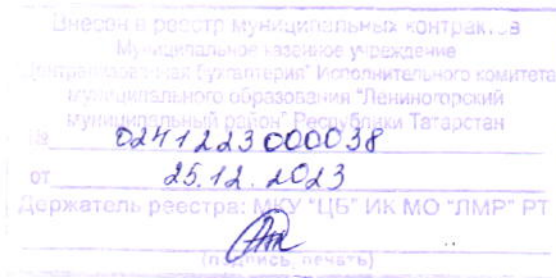 Внесен в реестр муниципальных контрактов
Муниципальное казенное учреждение
"Централизованная бухгалтерия" Исполнительного комитета
муниципального образования "Лениногорский
муниципальный район" Республики Татарстан
№ 0241223000038
от 25.12.2023
Держатель реестра: МКУ "ЦБ" ИК МО "ЛМР" РТ
(подпись, печать)